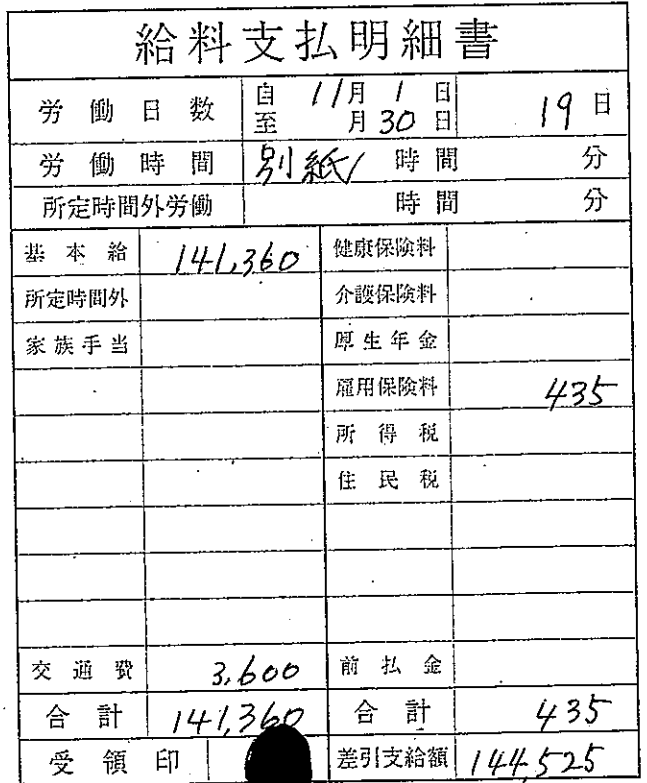 給料支払明細書
労働日数 自 11月 1日 至 月30日 19日
労働時間 別紙 時間 分
所定時間外労働 時間 分
基本給 141,360 健康保険料
所定時間外 介護保険料
家族手当 厚生年金
雇用保険料 435
所得税
住民税
交通費 3,600 前払金
合計 141,360 合計 435
受領印 差引支給額 144,525